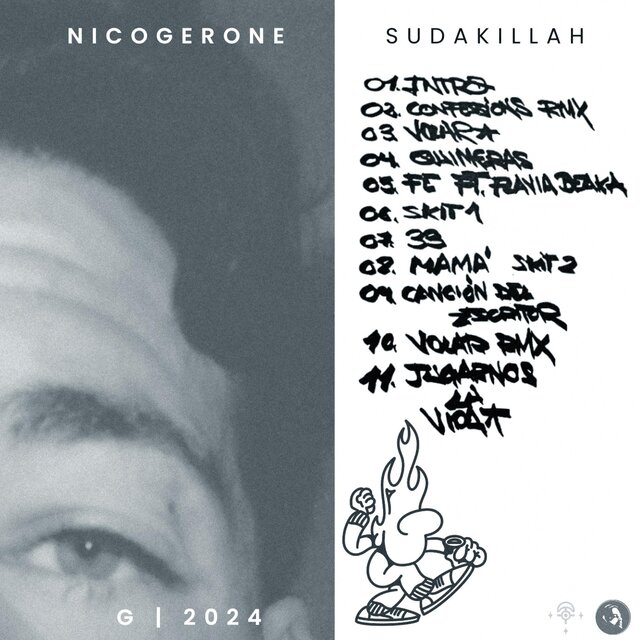 NICOGERONE
SUDAKILLAH
01. INTRO
02. CONFESIONS RMX
03. VOLAR
04. QUIMERAS
05. FE FT. FLAVIA
06. SKIT 1
07. 39
08. MAMÁ SKIT 2
09. CANCIÓN DEL
ESCRITOR
10. VOLAR RMX
11. JUGARNOS
LA
VIDA
G | 2024